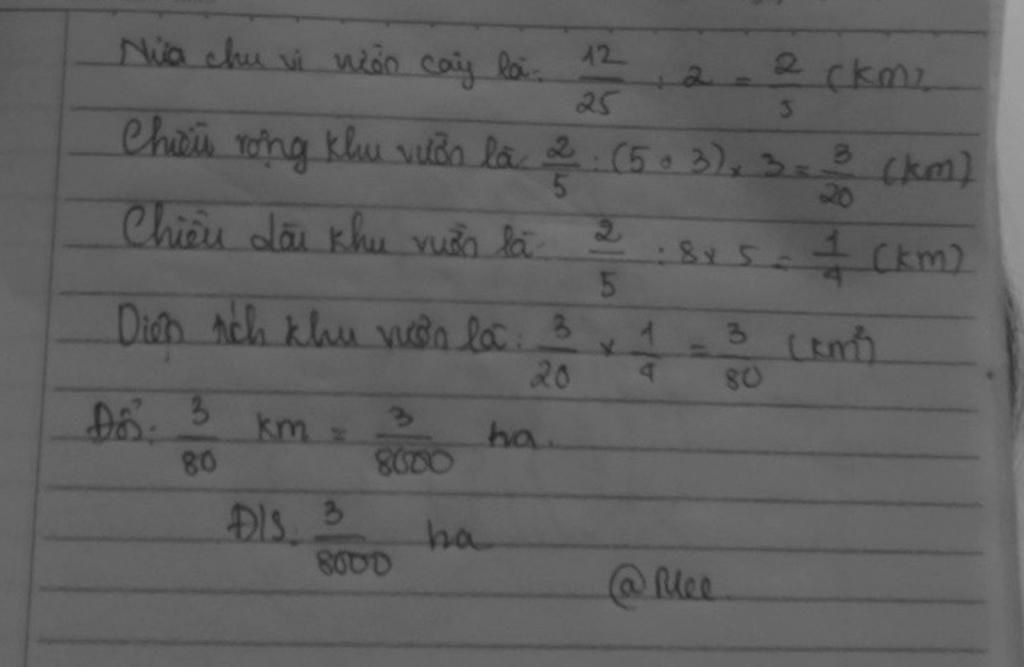 Nửa chu vi vườn cây là: 12/25 : 2 = 2/5 (km).
Chiều rộng khu vườn là: 2/5 : (5 + 3) x 3 = 3/20 (km)
Chiều dài khu vườn là: 2/5 : 8 x 5 = 1/4 (km)
Diện tích khu vườn là: 3/20 x 1/4 = 3/80 (km²)
Đổi: 3/80 km = 3/8000 ha.
Đ/S. 3/8000 ha